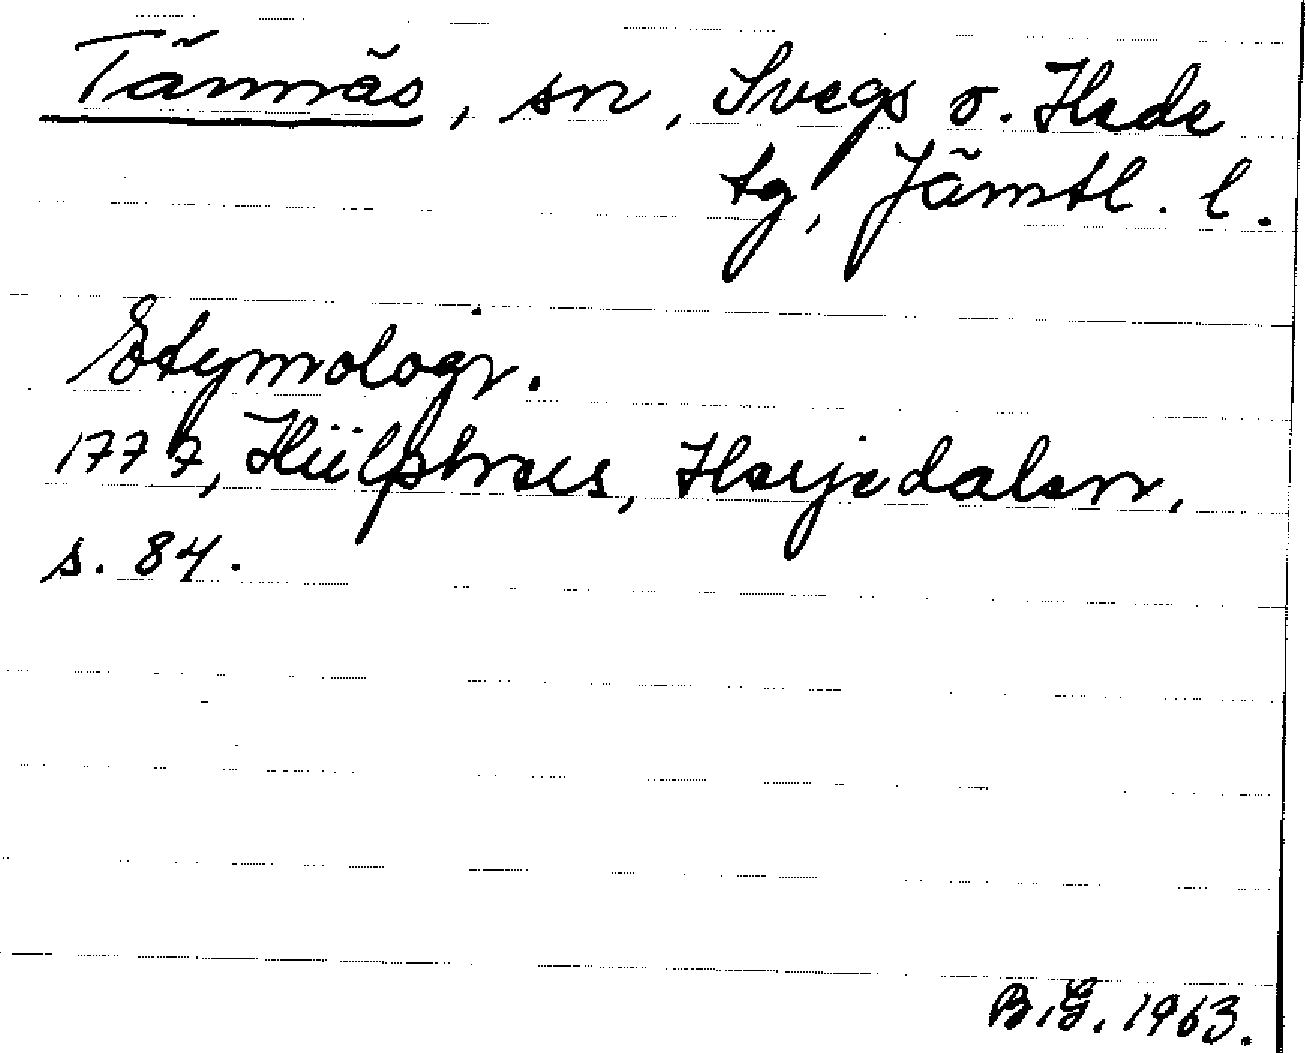 Tännäs, sn, Svegs o. Hede
tg, Jämtl. l.
Etymologi.
1777, Hülphers, Herjedalen,
s. 84.
B.G. 1963.